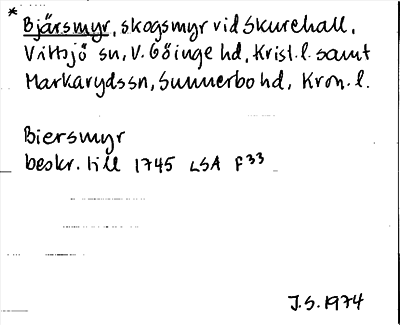 * Bjärsmyr, skogsmyr vid Skurehall,
Vittsjö sn, V. Göinge hd, Krist. l. samt
Markaryds sn, Sunnerbo hd, Kron. l.
Biersmyr
beskr. till 1745 LSA F 33
J.S. 1974